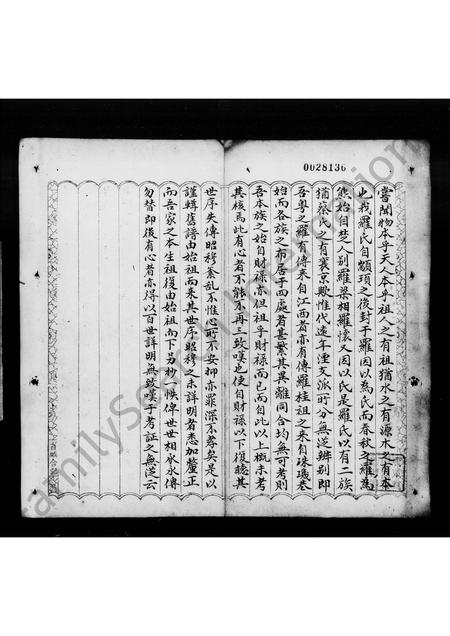 0028136
嘗聞物本乎天人本乎祖人之有祖猶水之有源木之有本
也我羅氏自顓頊之後封于羅因以為氏而春秋之羅為
熊始自楚人別羅梁相羅懷又因以氏是羅氏以有二族
猶蔡氏之有襄京歟惟代遠年湮支派所分無從辨別即
吾粵之羅有傳來自江西者亦有傳羅桂祖之來自珠璣巷
始而各族之布居于四處者甚繁其異離同合均無可考則
吾本族之始自財祿亦但祖乎財祿而已而自此以上概未考
其核焉此有心者不能不再三致嘆也使自財祿以下復聽其
世序失傳昭穆紊亂不惟心所不安抑亦罪深不容矣是以
謹輯舊譜由始祖而來其世序昭穆之未詳明者悉加釐正
而吾家之本生祖復由始祖而下另抄一帙俾世世相承永傳
勿替即後有心者亦得以百世詳明無致嘆于考証之無從云